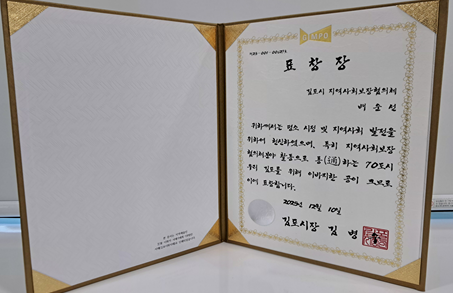 GIMPO
표 창 장
김포시 지역사회보장협의체
위하께서는 평소 시정 및 지역사회 발전을
위하여 헌신하였으며, 특히 지역사회보장
협의체분야 활동으로 통(通)하는 70도시
우리 김포를 위해 이바지한 공이 크므로
이에 표창합니다.
2025년 12월 10일
김포시장 김 병